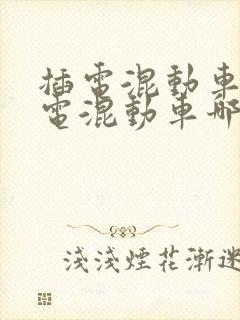 插電混動車
電混動車哪
淺淺煙花漸迷